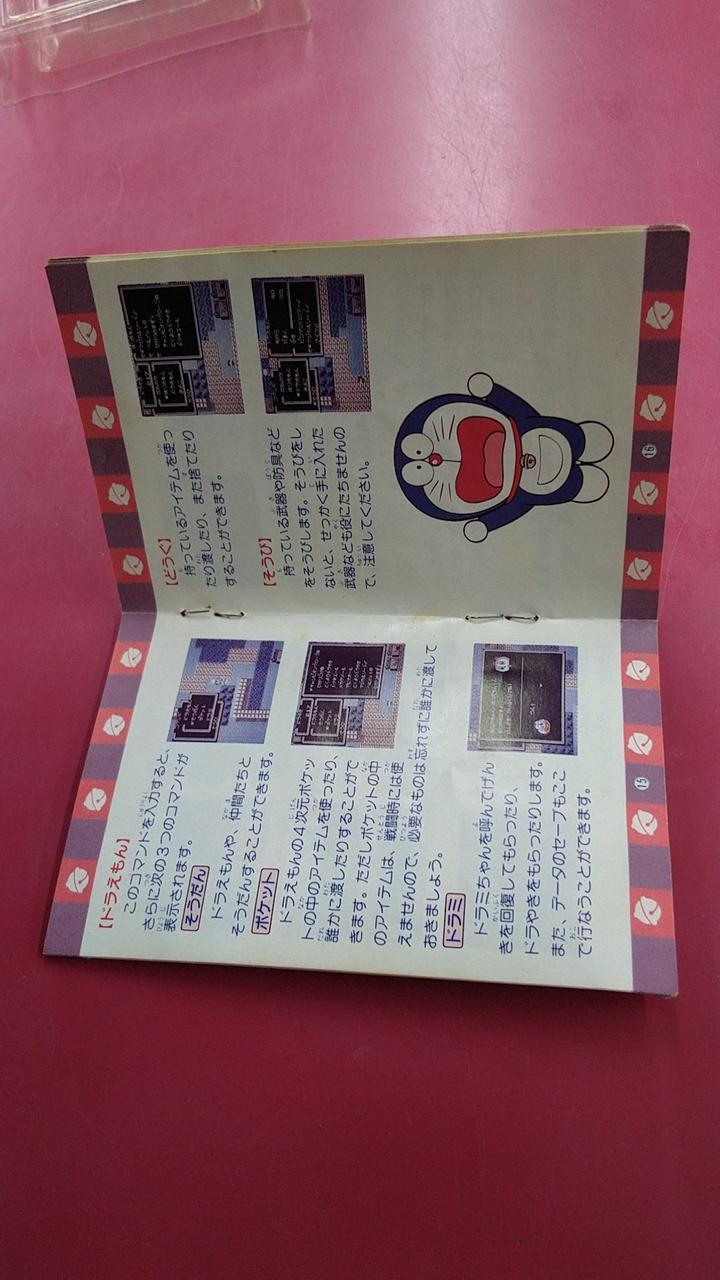 【ドラえもん】
このコマンドを入力すると、
さらに次の3つのコマンドが
表示されます。
そうだん
ドラえもんや、仲間たちと
そうだんすることができます。
ポケット
ドラえもんの4次元ポケッ
トの中のアイテムを使ったり、
誰かに渡したりすることがで
きます。ただしポケットの中
のアイテムは、戦闘時には使
えませんので、必要なものは忘れずに誰かに渡して
おきましょう。
ドラミ
ドラミちゃんを呼んでげん
きを回復してもらったり、
ドラやきをもらったりします。
また、データのセーブもここ
で行なうことができます。
15
【どうぐ】
持っているアイテムを使っ
たり渡したり、また捨てたり
することができます。
【そうび】
持っている武器や防具など
をそうびします。そうびをし
ないと、せっかく手に入れた
武器なども役にたちませんの
で、注意してください。
16